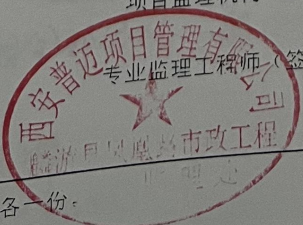 项目监理机构
西安普迈项目管理有限公司
专业监理工程师（签
市政工程
各一份。